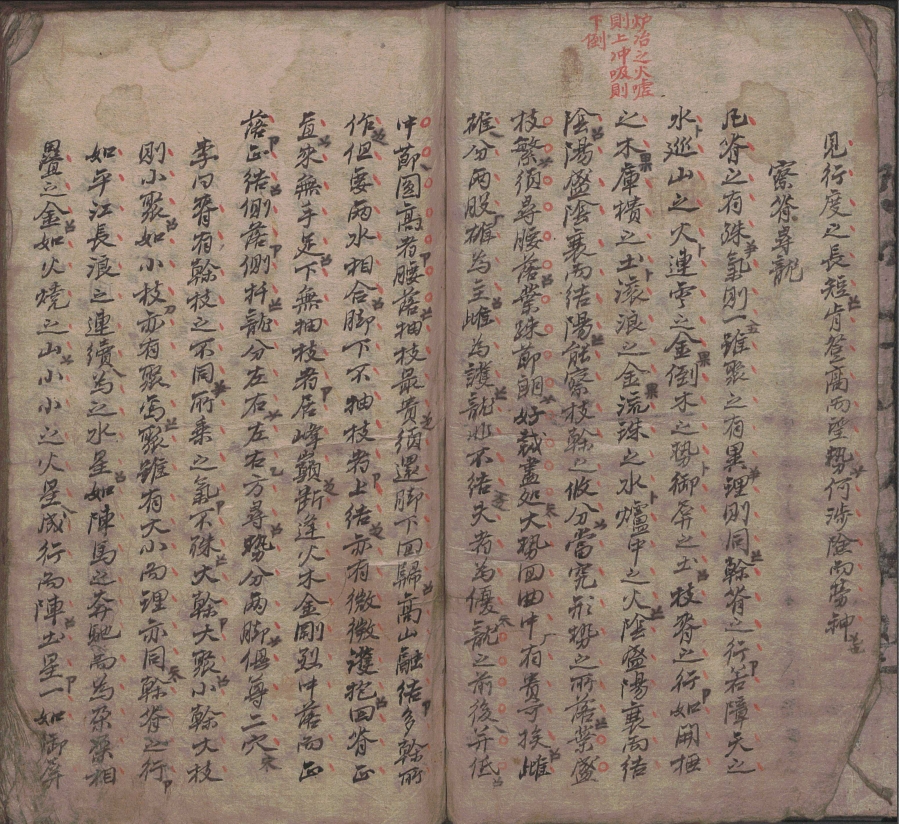 爐冶之火噓
則上冲吸則
下倒
見行度之長短肯登高而望勢何涉險而勞神
察脊尋龍
凡脊之有殊氣則一雖聚之有異理則同幹脊之行若障天之
水巡山之火連雲之金倒木之勢御屏之土枝脊之行如開抽
之木庫櫃之土滾浪之金流珠之水爐中之火陰盛陽衰而結
陰陽盛陰衰而結陽能察枝幹之攸分當究形勢之所落葉盛
枝繁須尋腰落葉踈節朗好裁盡処大勢回曲中有貴子挨雌
雄分兩股雄為主雌為護龍此不結夫者為優龍之前後并低
中節圓高者腰落抽枝最貴須還脚下回歸高山融結多幹所
作但要兩水相合脚下不抽枝者上結亦有微微護抱回脊正
直來無手足下無抽枝者居峰巔斷連火木金剛烈中落而正
落正結側落側扦龍分左右左右方尋勢分兩脚俱尋二穴
李曰脊有幹枝之不同所乘之氣不殊大幹大聚小幹大枝
則小聚如小枝亦有聚焉聚雖有大小而理亦同幹脊之行
如平江長浪之連續為之水星如陣馬之奔馳而為朶朶相
疊之金如火燒之山小小之火星成行而陣土星一如御屏